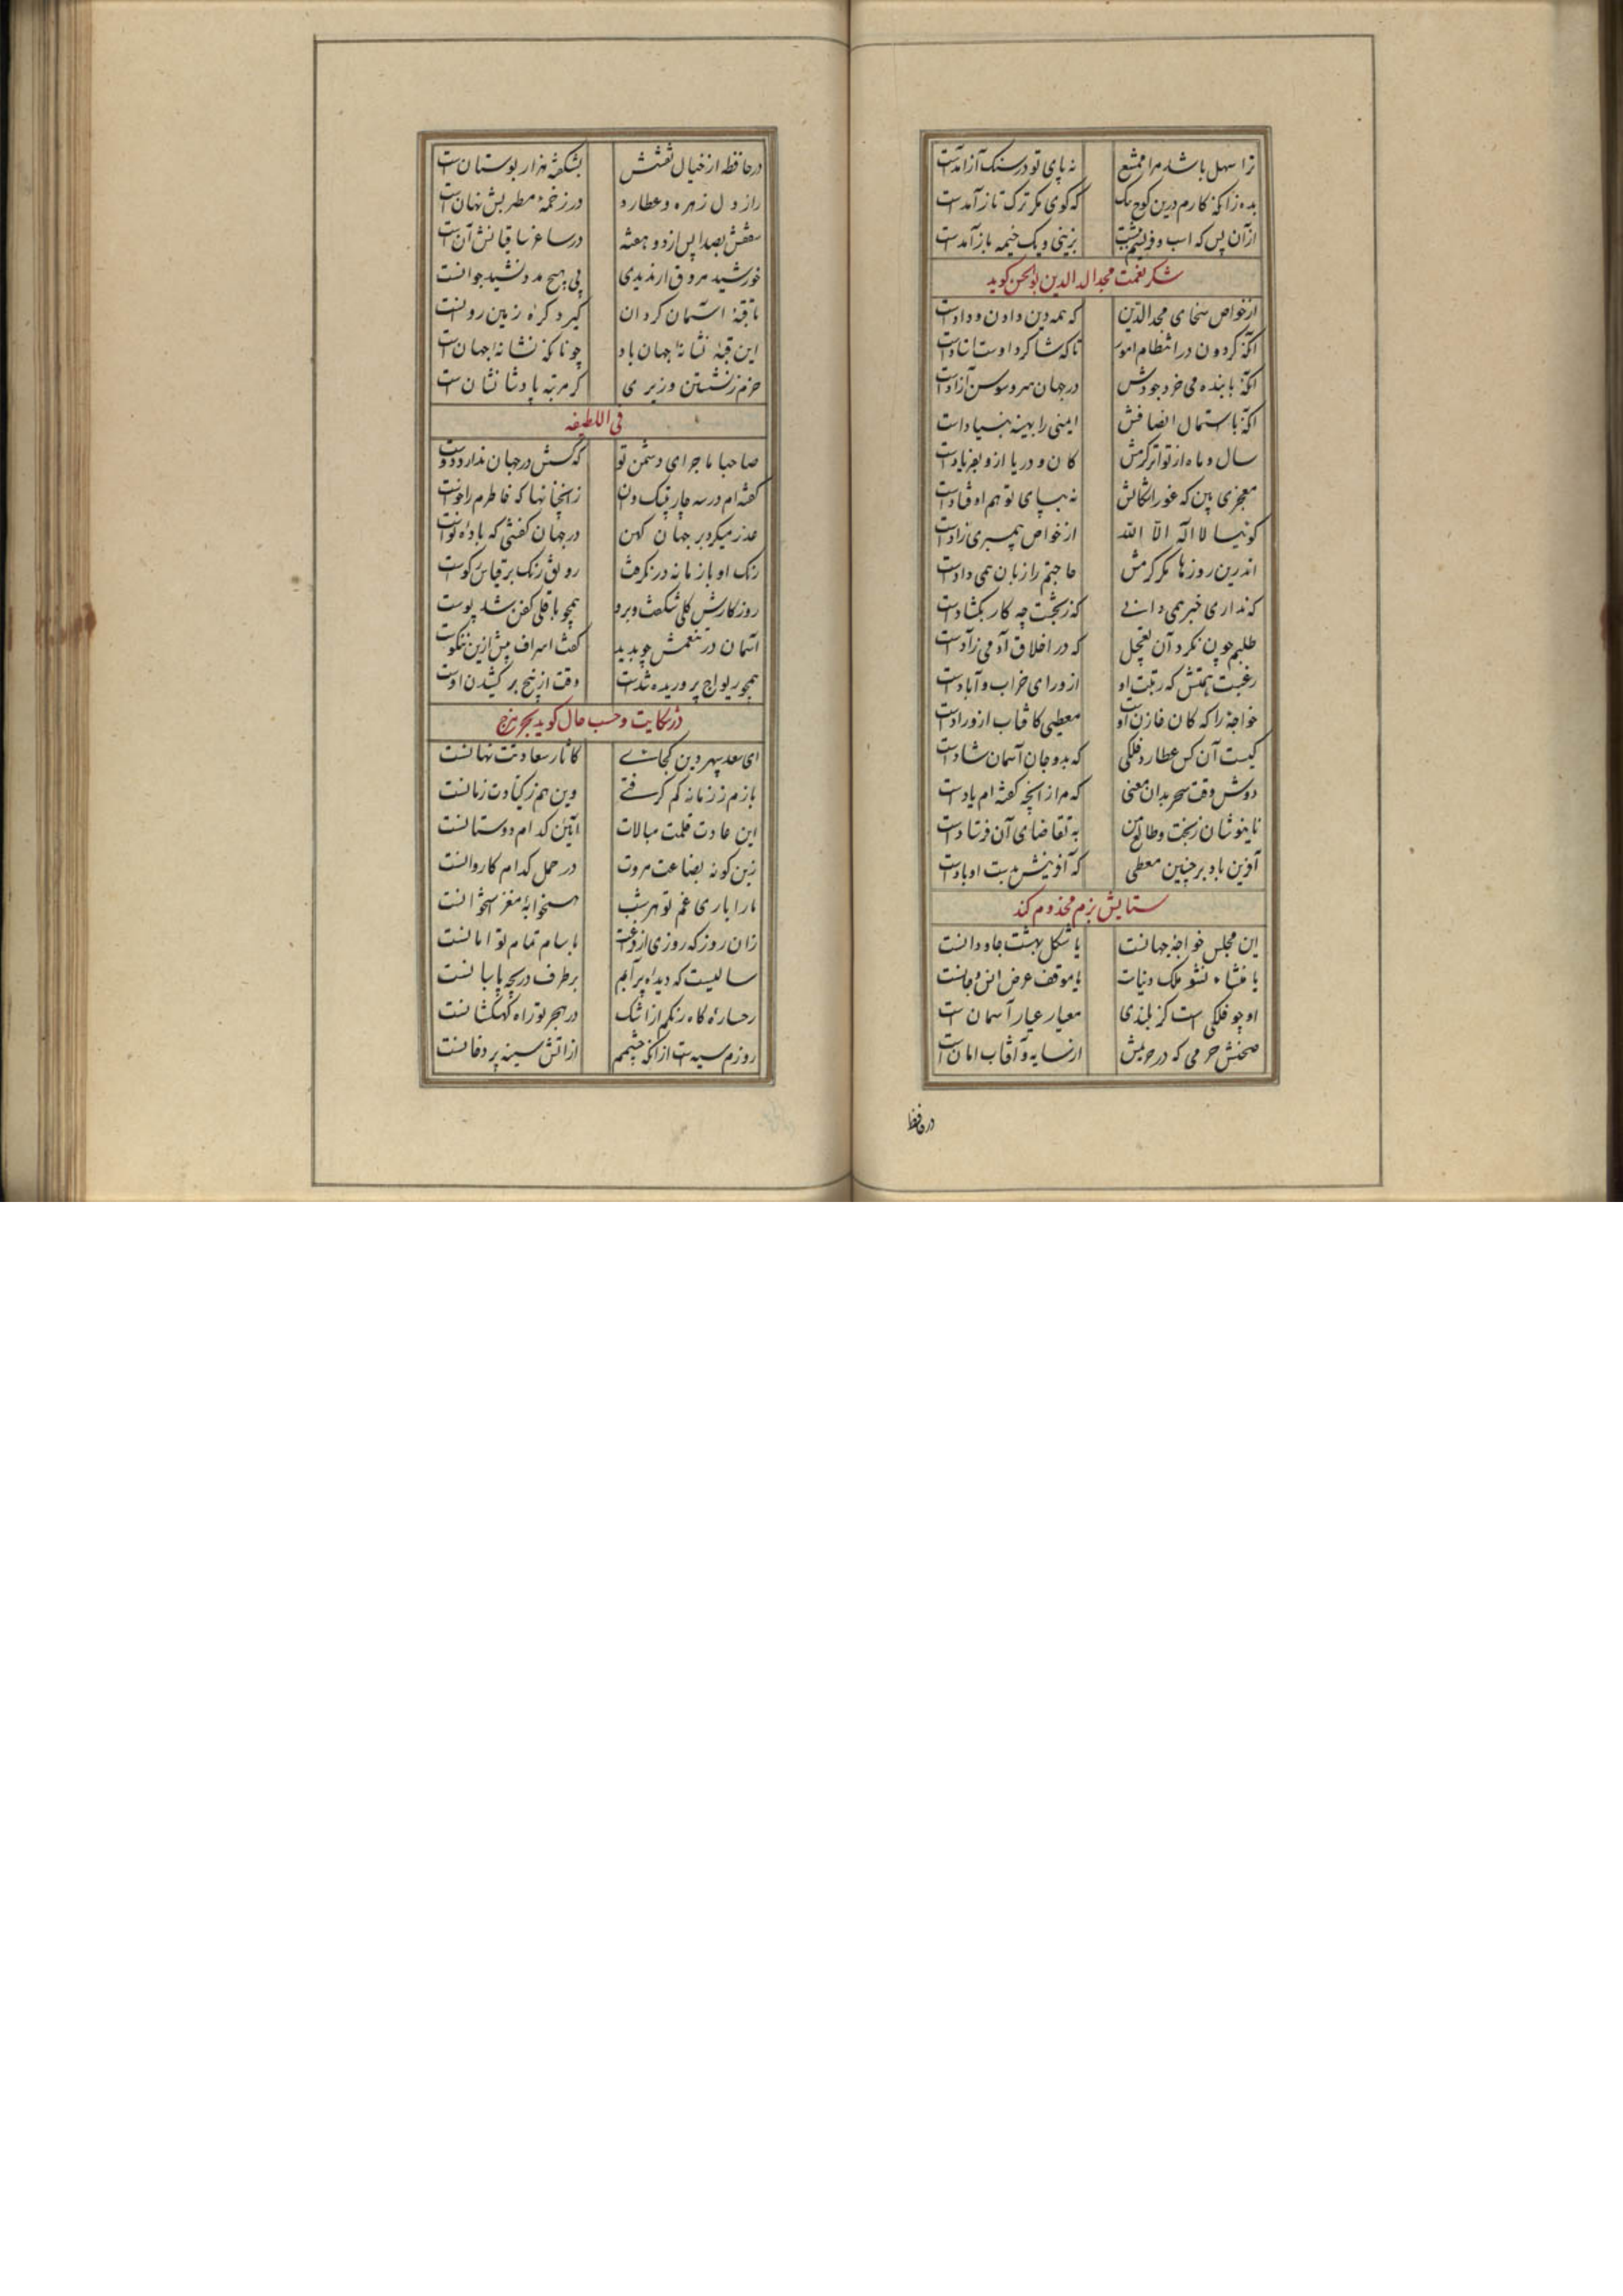 ترا سهل باشد مرا ممتنع نه پای تو در سنک آزامدست
بده زانکه کارم درین کوچ تنک که کوی مکر ترک تاز آمدست
از آن پس که اسب و فرو زینی و یک خیمه باز آمدست
شکر نعمت مجدالدین بوالحسن کوید
از خواص سخای مجدالدین که همه دین و دادن و دادست
آنکه کردون در انتظام امور تا که شاکرد اوست استادست
آنکه تا بنده می خرد جودش در جهان سرو و سوسن آزادست
آنکه با استمال انصافش ایمنی را بهینه بنیادست
سال و ماه از تواتر کرمش کان و دریا ازو بفریادست
معجزی بین که غور انکالش نه بپای توهم اوفتادست
کونیا لا اله الا الله از خواص پیمبری زادست
اندرین روزها مکر کرمش حاجتم را زبان همی دادست
که نداری خبر همی دانی که ز بخت چه کار بکشادست
طلبم چون نکرد آن تعجیل که در اخلاق آدمی زادست
رغبت همتش که رتبت او از ورای خراب و آبادست
خواجه را که کان خازن اوست معطیی کافتاب ازو رادست
کیست آن کس عطارد فلکی که بدو جان آسمان شادست
دوش وقت سحر بدان معنی که مرا زانچه کفته ام یادست
تا بنوشان ز بخت و طالع من به تقاضای آن فرستادست
آفرین باد بر چنین معطی که آفرینش بدست او بادست
ستایش بزم مخدوم کند
این مجلس خواجه جهانست یا شکل بهشت جاودانست
یا منشاء نشو ملک دنیاست یا موقف عرض انس و جانست
اوجو فلکی است کز بلندی معیار عیار آسمان است
صحنش حرمی که در حریمش از سایه و آفتاب امان است
در حافظه
در حافظه از خیال نعتش بشکفته هزار بوستان است
راز دل زهره و عطارد در زخمهٔ مطربش نهان است
سقفش بصدا پس از دو هفته در ساغر ساقیانش آن است
خورشید مروق ار ندیدی بی هیچ مد و نشید جوانست
تا قبهٔ آسمان کردان کرد کرهٔ زمین روانست
این قبه نشانهٔ جهان باد چونانکه نشانهٔ جهان است
خرم ز نشستن وزیری کز مرتبه پادشا نشان است
فی اللطیفه
صاحبا ماجرای دشمن تو که کسش در جهان ندارد دوست
کفته ام در سه چار تبک ون زانچنانها که خاطرم را خوست
عذر میکرد بر جهان کهن در جهان کفتی که باده نوست
رنک او با زمانه در نکرفت رونق رنک بر قیاس رکوست
روزکارش کلی شکفت و برو همچو باقلی کفن بشد پوست
آسمان در تنعمش چو بدید کفت اسراف بیش ازین ننکوست
همچو ریواج پروریده شدست وقت از بیخ بر کشیدن اوست
در شکایت و حسب حال کوید ببحر هزج
ای سعد سپهر دین کجائی کاثار سعادتت نهانست
بازم ز زمانه کم کرفتی وین هم ز کیادت زمانست
این عادت قلت مبالات آئین کدام دوستانست
زین کونه بضاعت مروت در حمل کدام کاروانست
ما را باری غم تو هر شب همخوابهٔ مغز استخوانست
زان روز که روزی از وداعت با سام تمام توامانست
سالیست که دیدهٔ پر آبم بر طرف دریچه پابانست
رخسارهٔ کاه رنکم از اشک در هجر تو راه کهکشانست
روزم سیه ست از آنکه چشمم از آتش سینه پر دخانست